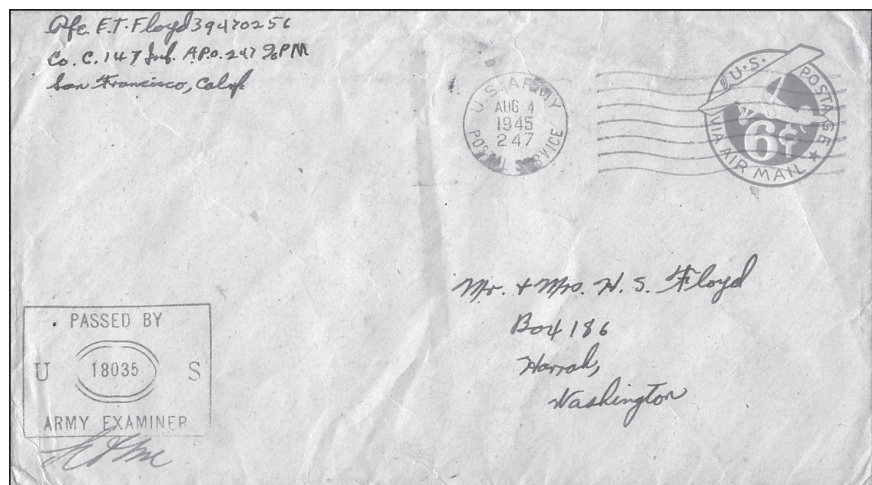 Pfc. E.T. Floyd 39470256
Co. C. 147 Inf. A.P.O. 247 % PM
San Francisco, Calif
U.S. ARMY
AUG 4
1945
247
POSTAL SERVICE
U.S. POSTAGE
6¢
VIA AIR MAIL
Mr. + Mrs. H. S. Floyd
Box 186
Harrah,
Washington
PASSED BY
U 18035 S
ARMY EXAMINER